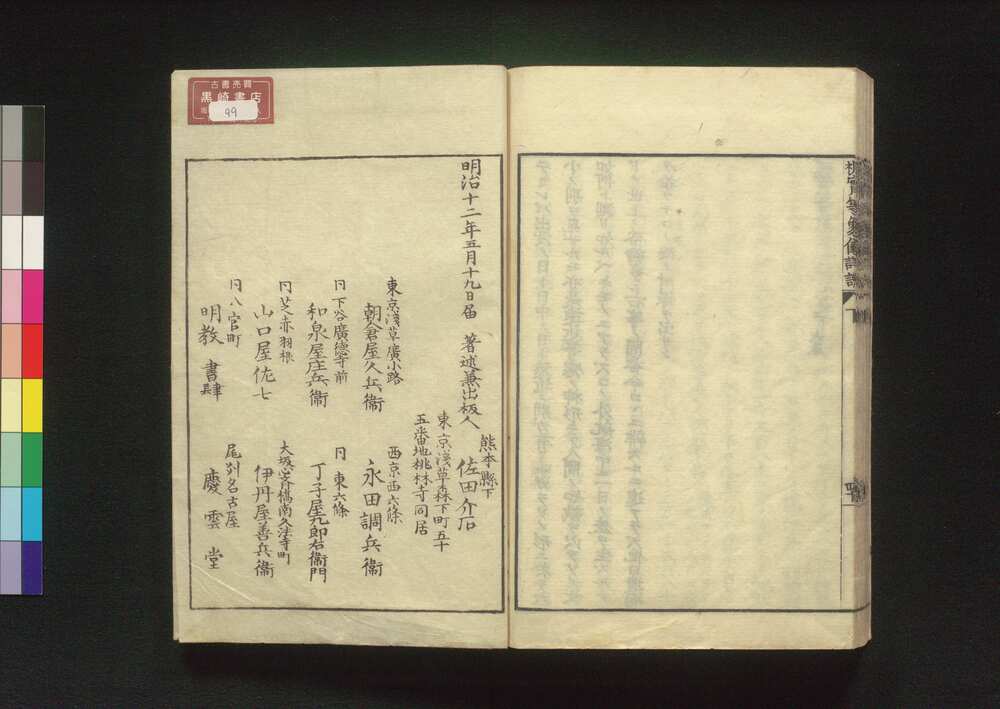 視實等象儀詳説
下
明治十二年五月十九日届 著述兼出板人
熊本縣下
佐田介石
東京淺草森下町五十
五番地桃林寺同居
東京淺草廣小路
朝倉屋久兵衞
同下谷廣德寺前
和泉屋庄兵衞
同芝赤羽根
山口屋佐七
同八官町
明教書肆
西京西六條
永田調兵衞
同東六條
丁子屋九郎右衞門
大坂心斉橋南久法寺町
伊丹屋善兵衞
尾州名古屋
慶雲堂
古書売買
黒崎書店
99